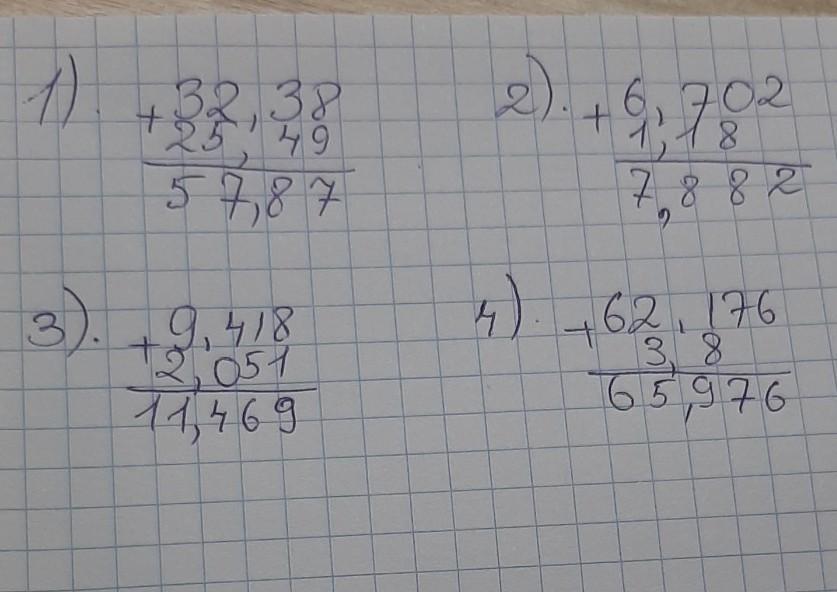 1). +32,38
25,49
57,87
2). +6,702
1,18
7,882
3). +9,418
2,051
11,469
4). +62,176
3,8
65,976